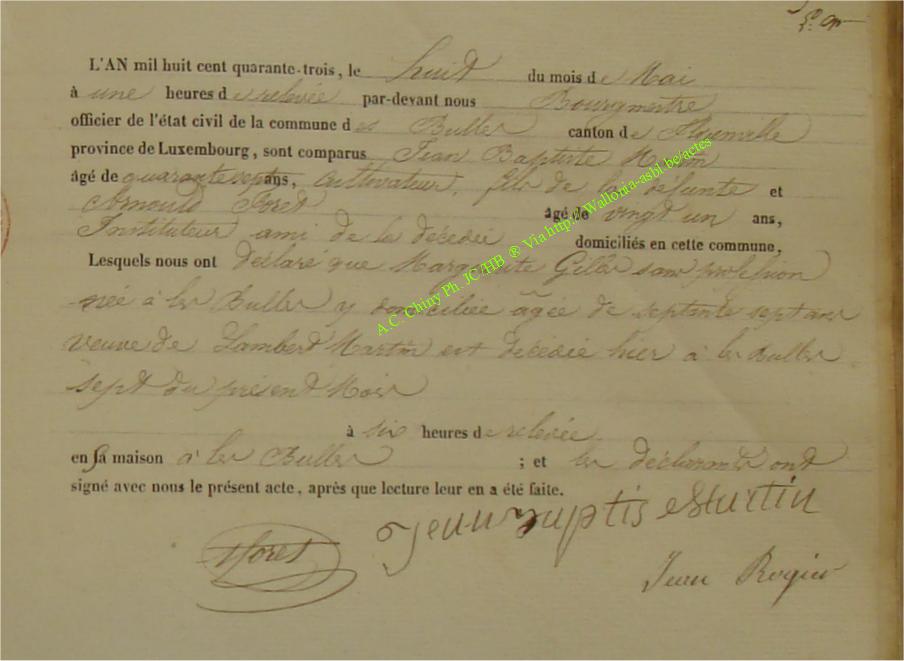 L'AN mil huit cent quarante-trois, le huit du mois de Mai
à une heures de relevée par-devant nous Bourgmestre
officier de l'état civil de la commune des Bulles canton de Florenville
province de Luxembourg, sont comparus Jean Baptiste Martin
âgé de quarante sept ans, Cultivateur, fils de la défunte et
Arnould Foret âgé de vingt un ans,
Instituteur ami de la décédée domiciliés en cette commune,
Lesquels nous ont déclaré que Marguerite Gilles sans profession
née à les Bulles y domiciliée âgée de septante sept ans
veuve de Lambert Martin est décédée hier à les Bulles
sept du présent Mois
à six heures de relevée
en sa maison à les Bulles ; et les déclarants ont
signé avec nous le présent acte, après que lecture leur en a été faite.
Jean baptis Martin
Foret
Jean
A.C. Chiny Ph. JCAHB ® Via http://Wallonia-asbl.be/actes